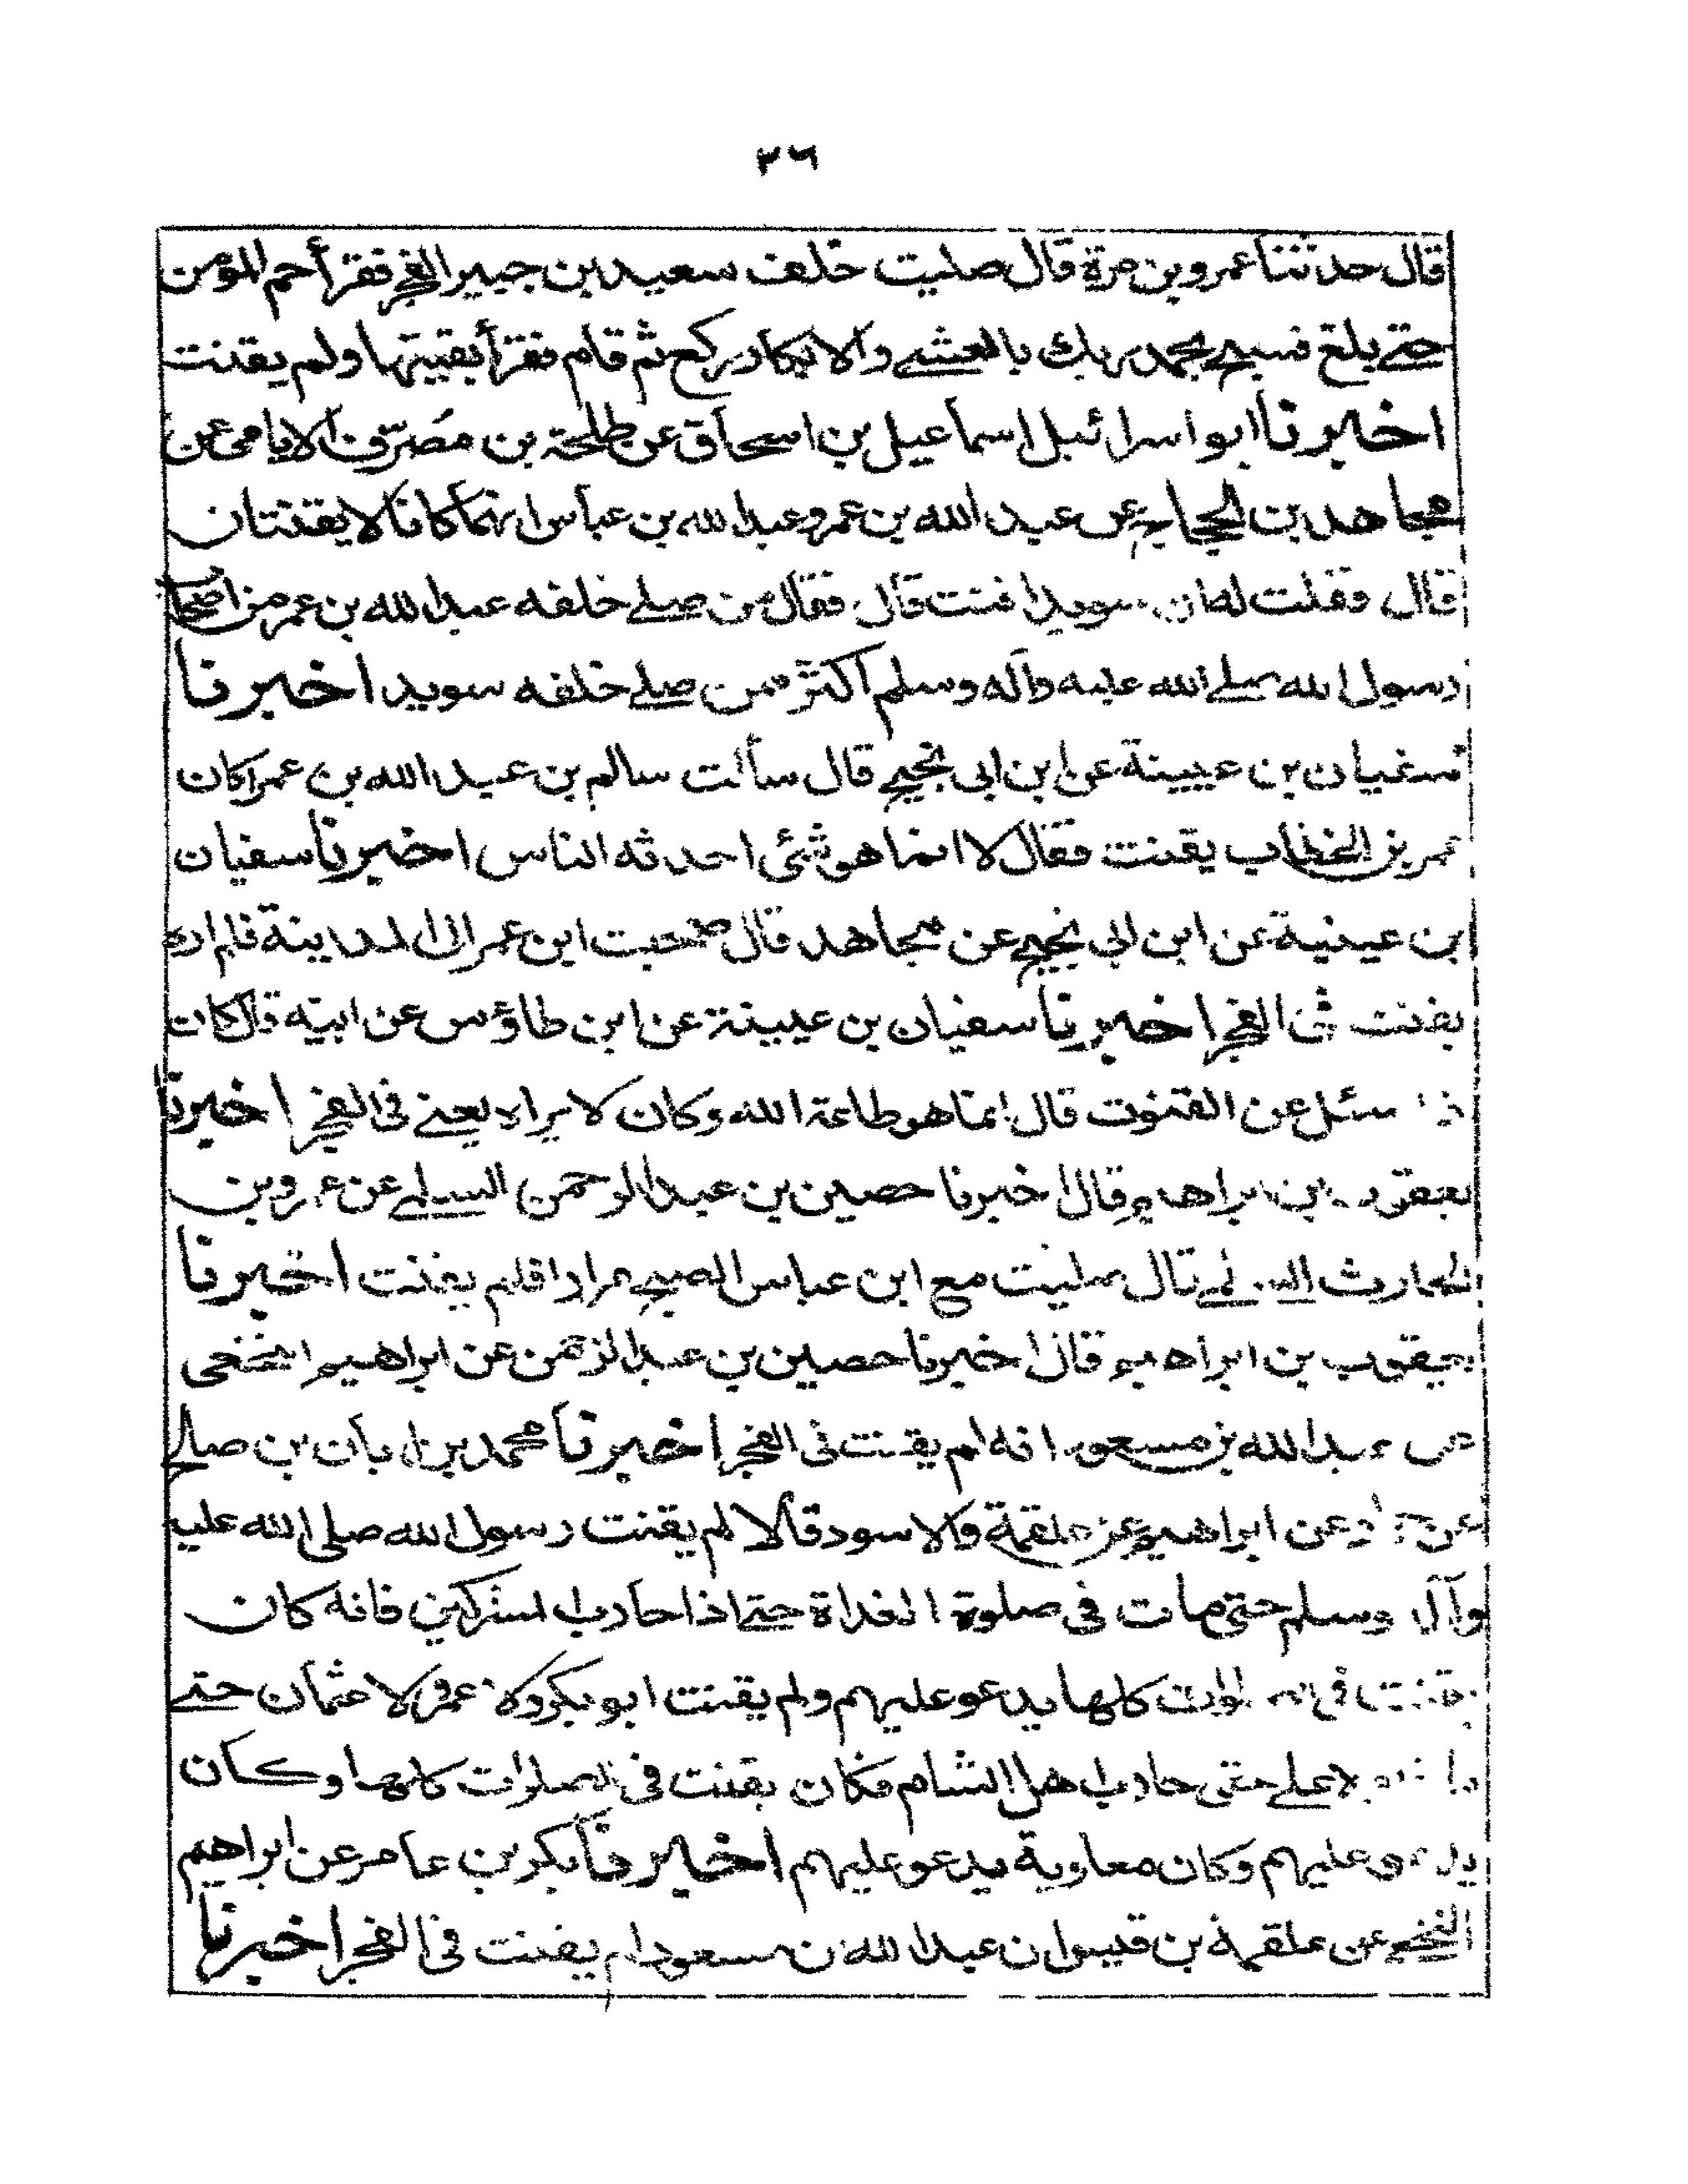 ٢٦
قال حدثنا عمرو بن مرة قال صليت خلف سعيد بن جبير الفجر فقرأ حم المؤمن
حتى بلغ فسبح بحمد ربك بالعشى والابكار ركع ثم قام فقرأ بقيتها ولم يقنت
اخبرنا ابو اسرائيل اسماعيل بن اسحاق عن طلحة بن مصرّف الايامى عن
مجاهد بن الحجاج عن عبد الله بن عمر وعبد الله بن عباس انهما كانا لا يقنتان
قال فقلت له ان سويدا قنت قال فقال من صلى خلفه عبد الله بن عمر من اصحا
رسول الله صلى الله عليه وآله وسلم اكثر ممن صلى خلفه سويد اخبرنا
سفيان بن عيينة عن ابن ابى نجيح قال سألت سالم بن عبد الله بن عمر اكان
عمر بن الخطاب يقنت فقال لا انما هو شئى احدثه الناس اخبرنا سفيان
ابن عيينية عن ابن ابى نجيح عن مجاهد قال صحبت ابن عمر الى المدينة فلم اره
يقنت فى الفجر اخبرنا سفيان بن عيينة عن ابن طاؤس عن ابيه قال كان
اذا سئل عن القنوت قال انما هو طاعة الله وكان لا يراه يعنى فى الفجر اخبرنا
يعقوب بن ابراهيم قال اخبرنا حصين بن عبد الرحمن السلمى عن عمرو بن
الحارث السلمى قال صليت مع ابن عباس الصبح مرارا فلم يقنت اخبرنا
يعقوب بن ابراهيم قال اخبرنا حصين بن عبد الرحمن عن ابراهيم النخعى
عن عبد الله بن مسعود انه لم يقنت فى الفجر اخبرنا محمد بن ابان بن صالح
عن حماد عن ابراهيم عن علقمة والاسود قالا لم يقنت رسول الله صلى الله عليه
وآله وسلم حتى مات فى صلوة الغداة حتى اذا حارب المشركين فانه كان
يقنت فى الصلوات كلها يدعو عليهم ولم يقنت ابو بكر ولا عمر ولا عثمان حتى
ولا على حتى حارب اهل الشام فكان يقنت فى الصلوات كلها وكان
يدعو عليهم وكان معاوية يدعو عليهم اخبرنا بكر بن عامر عن ابراهيم
النخعى عن علقمة بن قيس ان عبد الله بن مسعود لم يقنت فى الفجر اخبرنا